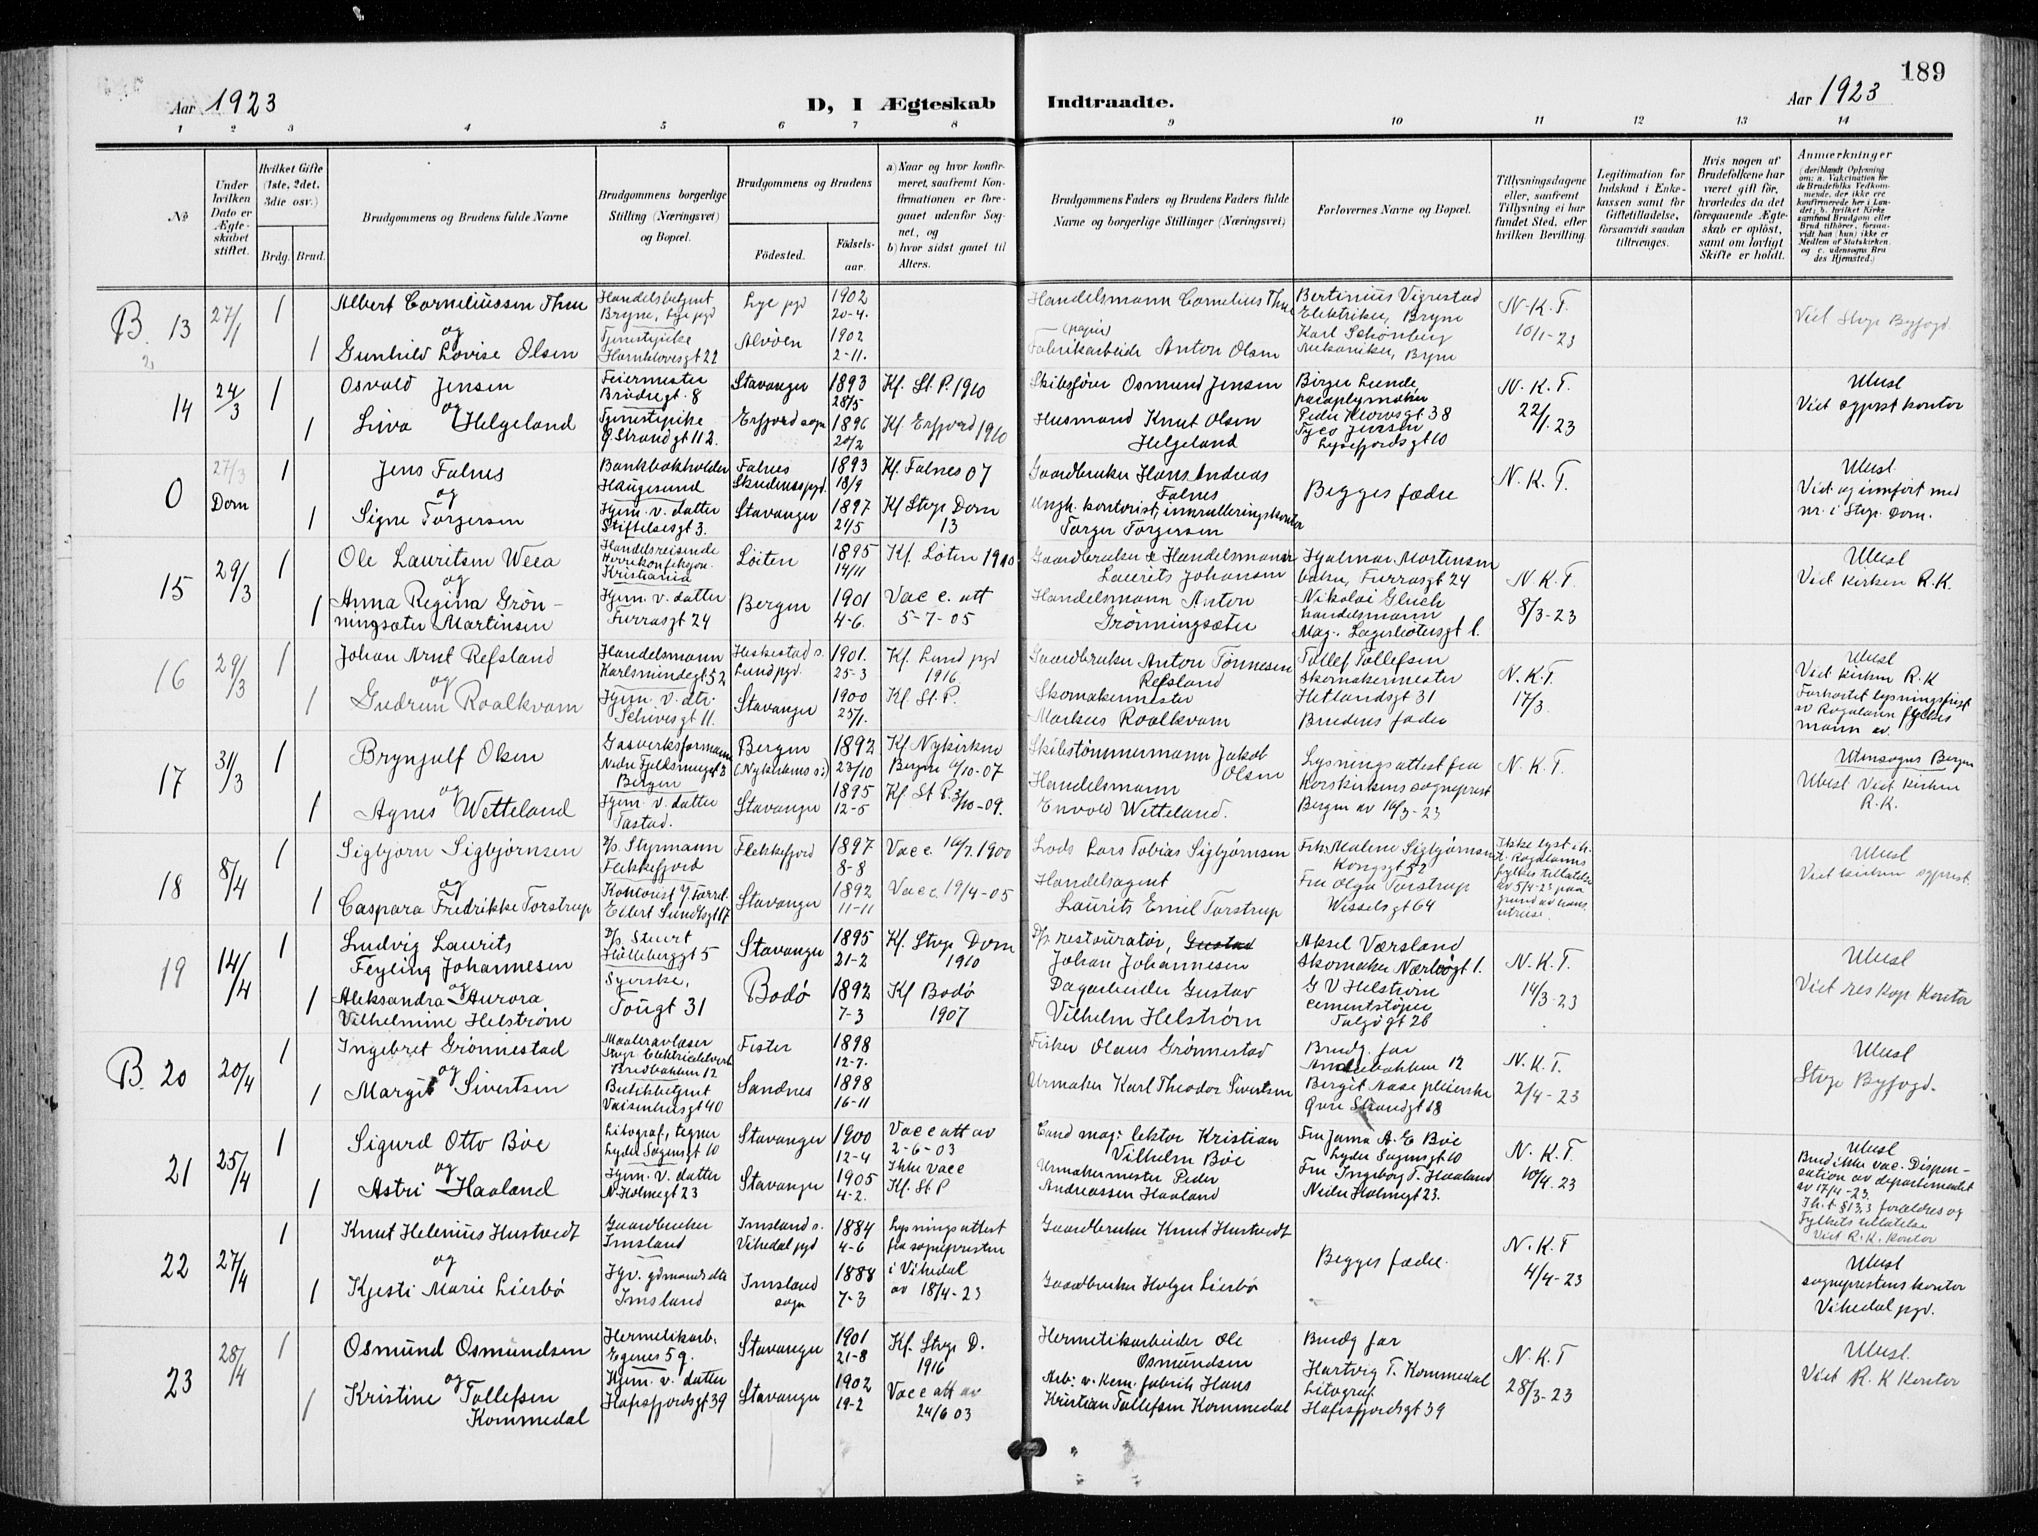 189
Aar 1923
D, I Ægteskab Indtraadte.
Aar 1923
1 2 3 4 5 6 7 8 9 10 11 12 13 14
№
Under hvilken Dato er Ægteskabet stiftet.
Hvilket Gifte (1ste, 2det, 3die osv.)
Brdg. Brud.
Brudgommens og Brudens fulde Navne
Brudgommens borgerlige Stilling (Næringsvei) og Bopæl.
Brudgommens og Brudens
Födested.
Födselsaar.
a) Naar og hvor konfirmeret, saafremt Konfirmationen er foregaaet udenfor Sognet, og
b) hvor sidst gaaet til Alters.
Brudgommens Faders og Brudens Faders fulde Navne og borgerlige Stillinger (Næringsvei)
Forlovernes Navne og Bopæl.
Tillysningsdagene eller, saafremt Tillysning ei har fundet Sted, efter hvilken Bevilling.
Legitimation for Indskud i Enkekassen samt for Giftetilladelse, forsaavidt saadan tiltrænges.
Hvis nogen af Brudefolkene har været gift för, hvorledes da det foregaaende Ægteskab er oplöst, samt om lovligt Skifte er holdt.
Anmærkninger (deriblandt Oplysning om: a. Vakcination for de Brudefolks Vedkommende, der ikke ere konfirmerede her i Landet; b. hvilket Kirkesamfund Brudgom eller Brud tilhörer, forsaavidt han (hun) ikke er Medlem af Statskirken, og c. udensogns Brudes Hjemsted.)
B. 13 27/1 1 Albert Corneliussen Thu
Handelsbetjent Bryne, Lye pgd Lye pgd 1902 20-4.
Handelsmann Cornelius Thu
Bertinius Vigrestad Elektriker, Bryne
N.K.T. 10/1-23
Viet Stvgr Byfogd.
og
1 Gunhild Lovise Olsen
Tjenestepike Alvøen 1902 2-11.
(papir) Fabrikarbeider Anton Olsen
Karl Schønberg Mekaniker, Bryne
14 24/3 1 Osvald Jensen
Feiermester Stavanger 1893 28/5 Kf. St. P. 1910
Skibsfører Osmund Jensen
Birger Lunde, paraplymaker Peder Klowsgt 38
N.K.T. 22/1.23
Utlust Viet sgprst kontor
og
1 Liva Helgeland
Tjenestepike Ø Strandgt 112. Erfjord sogn 1896 20/2 Kf Erfjord 1910
Husmand Knut Olsen Helgeland
Lysefjordsgt 10
0 27/3 Dom 1 Jens Falnes
Bankbokholder Haugesund Falnes Skudenes pgd. 1893 18/9 Kf. Falnes 07
Gaardbruker Hans Andreas Falnes
Begges fædre
N.K.T.
Utlust. Viet og innført med nr. i Stvgr. Dom.
og
1 Signe Torgersen
Hjem. v. datter Stiftelsesgt 3. Stavanger 1897 21/5 Kf Stvgr Dom 13
kontorist, innrulleringskontor Torger Torgersen
15 29/3 1 Ole Lauritsen Weea
Handelsreisende Herrekonfeksjon. Kristiania Løiten 1895 14/11 Kf. Løten 1910
Gaardbruker & Handelsmann Laurits Johansen
Hjalmar Mortensen Furrasgt 24
N.K.T. 8/3-23
Utlust Viet Kirken R.K.
og
1 Anna Regina Grønningsæter Martinsen
Hjem. v. datter Furrasgt 24 Bergen 1901 4-6. Vacc. att 5-7-05
Handelsmann Anton Grønningsæter
Nikolai handelsmann
16 29/3 1 Johan Arnt Refsland
Handelsmann Karlsmindegt 52 Heskestad s. Lund pgd. 1901. 25-3 Kf. Lund pgd 1916
Gaardbruker Anton Tønnesen Refsland
Tollef Tollefsen Skomakermester Hetlandsgt 31
N.K.T. 17/3.
Utlust Viet kirken R.K
Forkortet lysningsfrist av Rogaland fylkesmann av.
og
1 Gudrun Roalkvam
Hjem. v. dtr. Schivesgt 11. Stavanger 1900 25/1. Kf. St. P.
Skomakermester Markus Roalkvam
Brudens fader
17 31/3 1 Brynjulf Olsen
Gasverksformann Bergen Bergen (Nykirkens s.) 1892 23/10 Kf Nykirken Bergen 6/10-07
Skibstømmermann Jakob Olsen
Lysningsattest fra Korskirkens sogneprest Bergen av 16/3-23
N.K.T.
Utensogns Bergen
Utlust Viet kirken R.K.
og
1 Agnes Wetteland
Hjem. v. datter Tastad. Stavanger 1895 12-5 Kf. St P. 3/10-09.
Handelsmann Envold Wetteland.
18 8/4 1 Sigbjørn Sigbjørnsen
D/s. Styrmann Flekkefjord Flekkefjord 1897 8-8 Vacc. 16/7 1900
Lods Lars Tobias Sigbjørnsen
Frk: Malene Sigbjørnsen Kongsgt 52
Ikke lyst i h. t. Rogalands fylkes tillatelse av 5/4-23 paa grund av hans utreise.
Utlust Viet kirken sgprest.
og
1 Caspara Fredrikke Torstrup
Eilert Sundtsgt 17 Stavanger 1892 11-11 Vacc. 19/4-05
Handelsagent Laurits Emil Torstrup
Fru Olga Torstrup Wesselsgt 64
19 14/4 1 Ludvig Laurits Feyling Johannesen
D/s. Stuert Hølleberggt 5 Stavanger 1895 21-2 Kf. Stvgr Dom 1910
D/s restouratør, Gustav Johan Johannesen
Aksel Værsland Skomaker Nærbøgt 1.
N.K.T. 14/3-23
Utlust Viet res kap Kontor
og
1 Aleksandra Aurora Vilhelmine Helstrøm
Syerske, Tougt 31 Bodø 1892 7-3 Kf Bodø 1907
Dagarbeider Gustav Vilhelm Helstrøm
G V Helstrøm cementstøper Talgøgt 26
B. 20 20/4 1 Ingebret Grønnestad
Maaleravlæser Stvgr. Elektricitetsverk Bredbakken 12 Fister 1898 12-7.
Fisker Olaus Grønnestad
Brudg. far
N.K.T. 2/4-23
Utlust Stvgr Byfogd.
og
1 Margit Sivertsen
Butikbetjent Vaisenhusgt 40 Sandnes 1898 16-11
Urmaker Karl Theodor Sivertsen
Bergit Aase pleierske Øvre Strandgt 18
21 25/4 1 Sigurd Otto Bøe
Litograf, tegner Lyder Sagensgt 10 Stavanger 1900 12-4 Vacc att av 2-6-03
Cand mag: lektor Kristian Vilhelm Bøe
Fru Janna A. E Bøe Lyder Sagensgt 10
N.K.T. 10/4.23
Utlust Brud ikke vac. Dispensation av departementet av 17/4-23.
I h.t §13,3 forældres og Fylkets tillatelse
Viet R.K. kontor
og
1 Astri Haaland
Hjem. v. datter N. Holmegt 23 Stavanger 1905 4-2. Ikke vacc Kf. St P
Urmakermester Peder Andreassen Haaland
Fru Ingeborg T. Haaland Nedre Holmegt 23.
22 27/4 1 Knut Helenius Hustvedt
Gaardbruker Imsland Imsland s. Vikedal pgd 1884 4-6 Lysningsattest fra sognepresten i Vikedal av 18/4-23
Gaardbruker Knut Hustvedt
Begges fædre.
N.K.T 4/4-23
Utlust sogneprestens kontor Vikedal pgd.
og
1 Kjesti Marie Lierbø
Imsland Imsland sogn 1888 7-3
Gaardbruker Holger Lierbø
23 28/4 1 Osmund Osmundsen
Hermetikarb: Egenes 59. Stavanger 1901 21-8 Kf. Stvgr D. 1916
Hermetikarbeider Ole Osmundsen
Brudg far
N.K.T 28/3-23
Utlust. Viet R.K Kontor
og
1 Kristine Tollefsen Kommedal
Hjem. v. datter Hafrsfjordsgt 39 Stavanger 1902 19-2 Vacc att av 24/6 03
Arb: v. kem. fabrik Hans Kristian Tollefsen Kommedal
Hartvig T. Kommedal Litograf Hafrsfjordsgt 39